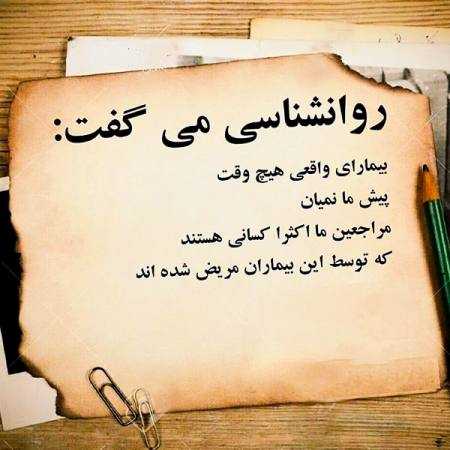 روانشناسی می گفت:
بیمارای واقعی هیچ وقت
پیش ما نمیان
مراجعین ما اکثرا کسانی هستند
که توسط این بیماران مریض شده اند